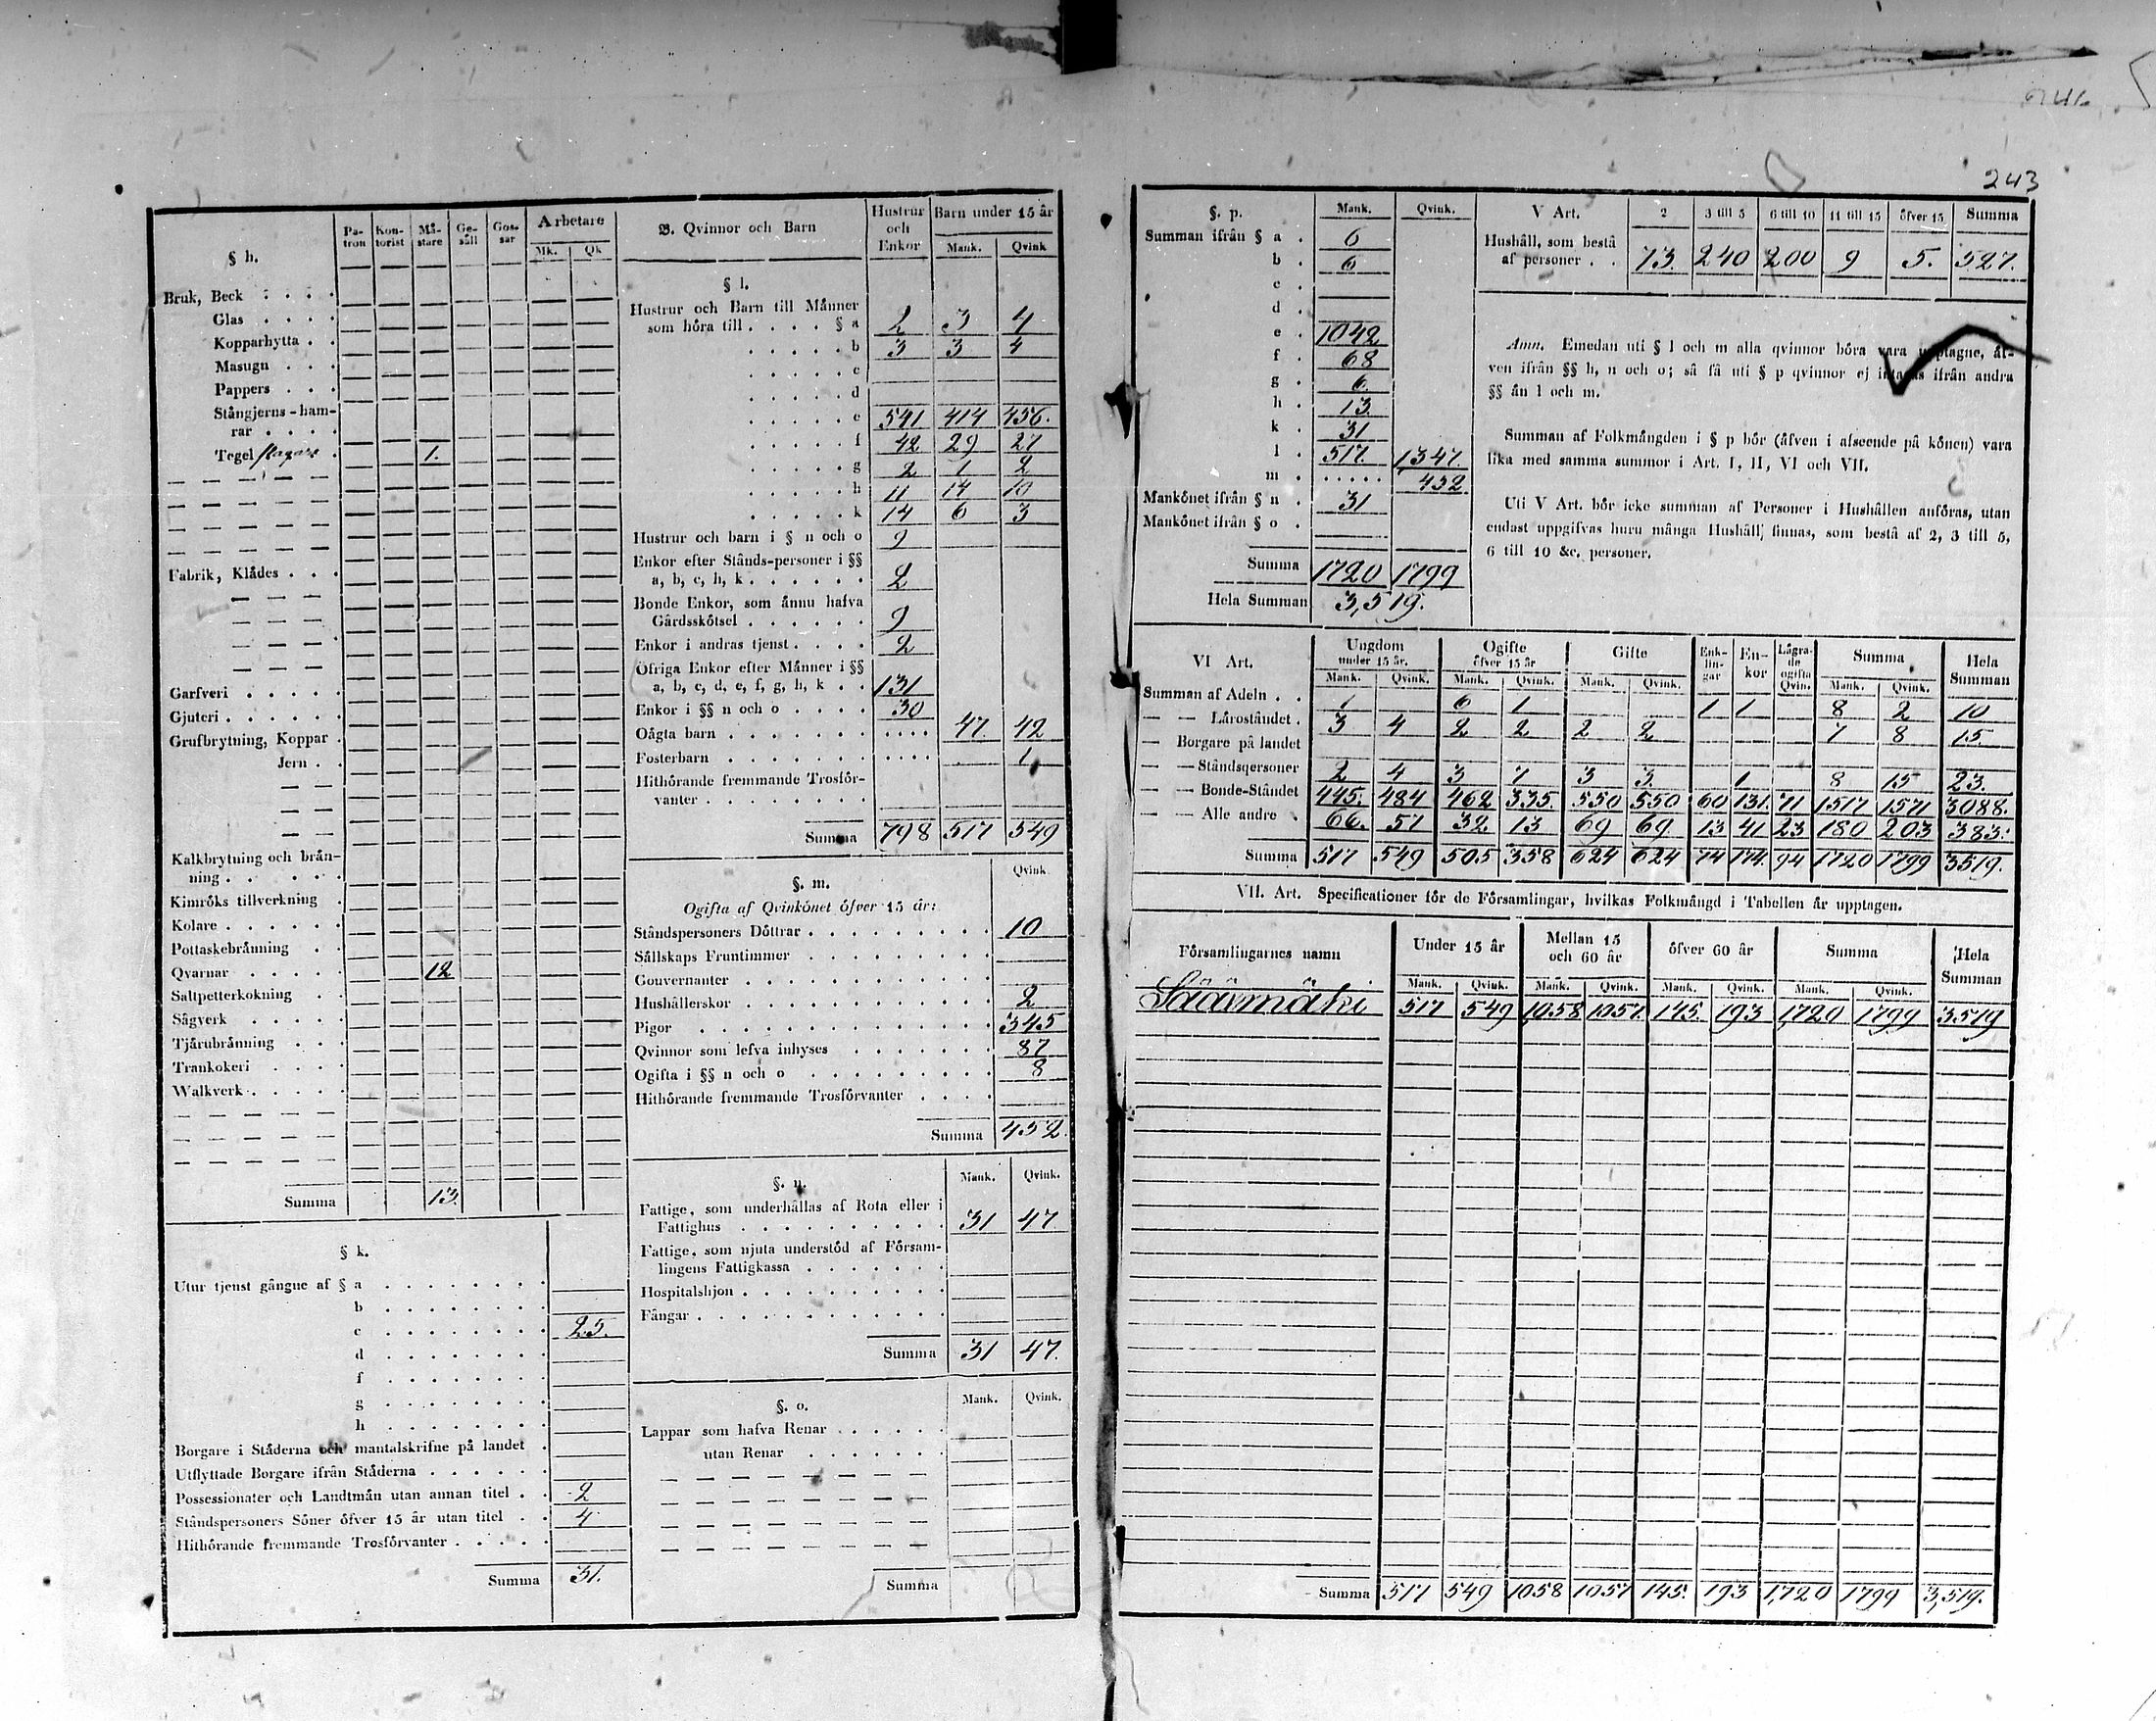 243
§ h.
Pa-tron Kon-torist Må-stare Ge-säll Gos-sar Arbetare
Mk. Qk
Bruk, Beck . . . .
Glas . . . .
Kopparhytta . .
Masugn . . .
Pappers . . .
Stångjerns-ham-
rar . . . .
Tegel 1.
Fabrik, Klädes . . .
Garfveri . . . . .
Gjuteri . . . . . .
Grufbrytning, Koppar .
Jern . .
Kalkbrytning och brän-
ning . . . . .
Kimröks tillverkning .
Kolare . . . . . .
Pottaskebränning . .
Qvarnar . . . . . 12
Saltpetterkokning . .
Sågverk . . . . .
Tjärubränning . . .
Trankokeri . . . .
Walkverk . . . . .
Summa 13.
§ k.
Utur tjenst gångne af § a . . . . . . . .
b . . . . . . . .
c . . . . . . . . 25.
d . . . . . . . .
f . . . . . . . .
g . . . . . . . .
h . . . . . . . .
Borgare i Städerna och mantalskrifne på landet .
Utflyttade Borgare ifrån Städerna . . . . . .
Possessionater och Landtmän utan annan titel . . 2
Ståndspersoners Söner öfver 15 år utan titel . . 4
Hithörande fremmande Trosförvanter . . . . .
Summa 31.
B. Qvinnor och Barn Hustrur och Enkor Barn under 15 år
Mank. Qvink
§ l.
Hustrur och Barn till Männer
som höra till . . . . § a 2 3 4
. . . . . b 3 3 4
. . . . . c
. . . . . d
. . . . . e 541 414 456.
. . . . . f 42 29 27
. . . . . g 2 1 2
. . . . . h 11 14 10
. . . . . k 14 6 3
Hustrur och barn i § n och o 9
Enkor efter Stånds-personer i §§
a, b, c, h, k . . . . . . 2
Bonde Enkor, som ännu hafva
Gårdsskötsel . . . . . . 9
Enkor i andras tjenst . . . . 2
Öfriga Enkor efter Männer i §§
a, b, c, d, e, f, g, h, k . . 131
Enkor i §§ n och o . . . . 30
Oägta barn . . . . . . . . . . . 47. 42
Fosterbarn . . . . . . . . . . . 1
Hithörande fremmande Trosför-
vanter . . . . . . . .
Summa 798 517 549
§. m.
Qvink
Ogifta af Qvinkönet öfver 15 år:
Ståndspersoners Döttrar . . . . . . . . . 10
Sällskaps Fruntimmer . . . . . . . . . .
Gouvernanter . . . . . . . . . . . .
Hushållerskor . . . . . . . . . . . . 2
Pigor . . . . . . . . . . . . . . 345
Qvinnor som lefva inhyses . . . . . . . 87
Ogifta i §§ n och o . . . . . . . . . 8
Hithörande fremmande Trosförvanter . . . .
Summa 452.
§. n.
Mank. Qvink.
Fattige, som underhållas af Rota eller i
Fattighus . . . . . . . . . . 31 47
Fattige, som njuta understöd af Försam-
lingens Fattigkassa . . . . . . .
Hospitalshjon . . . . . . . . . .
Fångar . . . . . . . . . . . .
Summa 31 47.
§. o.
Mank. Qvink.
Lappar som hafva Renar . . . . . .
utan Renar . . . . . .
Summa
§. p. Mank. Qvink.
Summan ifrån § a . 6
b . 6
c .
d .
e . 1042
f . 68
g . 6.
h . 13.
k . 31
l . 517. 1347.
m . . . . . . 452.
Mankönet ifrån § n . 31
Mankönet ifrån § o .
Summa 1720 1799
Hela Summan 3,519.
V Art. 2 3 till 5 6 till 10 11 till 15 öfver 15 Summa
Hushåll, som bestå
af personer . . 73. 240 200 9 5. 527.
Anm. Emedan uti § l och m alla qvinnor böra vara upptagne, äf-
ven ifrån §§ h, n och o; så få uti § p qvinnor ej intagas ifrån andra
§§ än l och m.
Summan af Folkmängden i § p bör (äfven i afseende på könen) vara
lika med samma summor i Art. I, II, VI och VII.
Uti V Art. bör icke summan af Personer i Hushållen anföras, utan
endast uppgifvas huru många Hushåll finnas, som bestå af 2, 3 till 5,
6 till 10 &c. personer.
VI Art. Ungdom under 15 år. Ogifte öfver 15 år Gifte Enk-lin-gar En-kor Lägra-de ogifta Qvin. Summa Hela Summan
Mank. Qvink. Mank. Qvink. Mank. Qvink. Mank. Qvink.
Summan af Adeln . . 1 6 1 1 1 8 2 10
— — Läroståndet . 3 4 2 2 2 2 7 8 15.
— Borgare på landet
— — Ståndspersoner 2 4 3 7 3 3. 1 8 15 23.
— — Bonde-Ståndet 445. 484 462 335. 550 550 60 131. 71 1517 1571 3088.
— — Alle andre . 66. 51 32. 13 69 69 13 41 23 180 203 383.
Summa 517 549 505 358 624 624 74 174. 94 1720 1799 3519.
VII. Art. Specificationer för de Församlingar, hvilkas Folkmängd i Tabellen är upptagen.
Församlingarnes namn Under 15 år Mellan 15 och 60 år öfver 60 år Summa Hela Summan
Mank. Qvink. Mank. Qvink. Mank. Qvink. Mank. Qvink.
Sääxmäki 517 549 1058 1057. 145. 193 1,720 1799 3519
Summa 517 549 1058 1057 145. 193 1,720 1799 3,519.